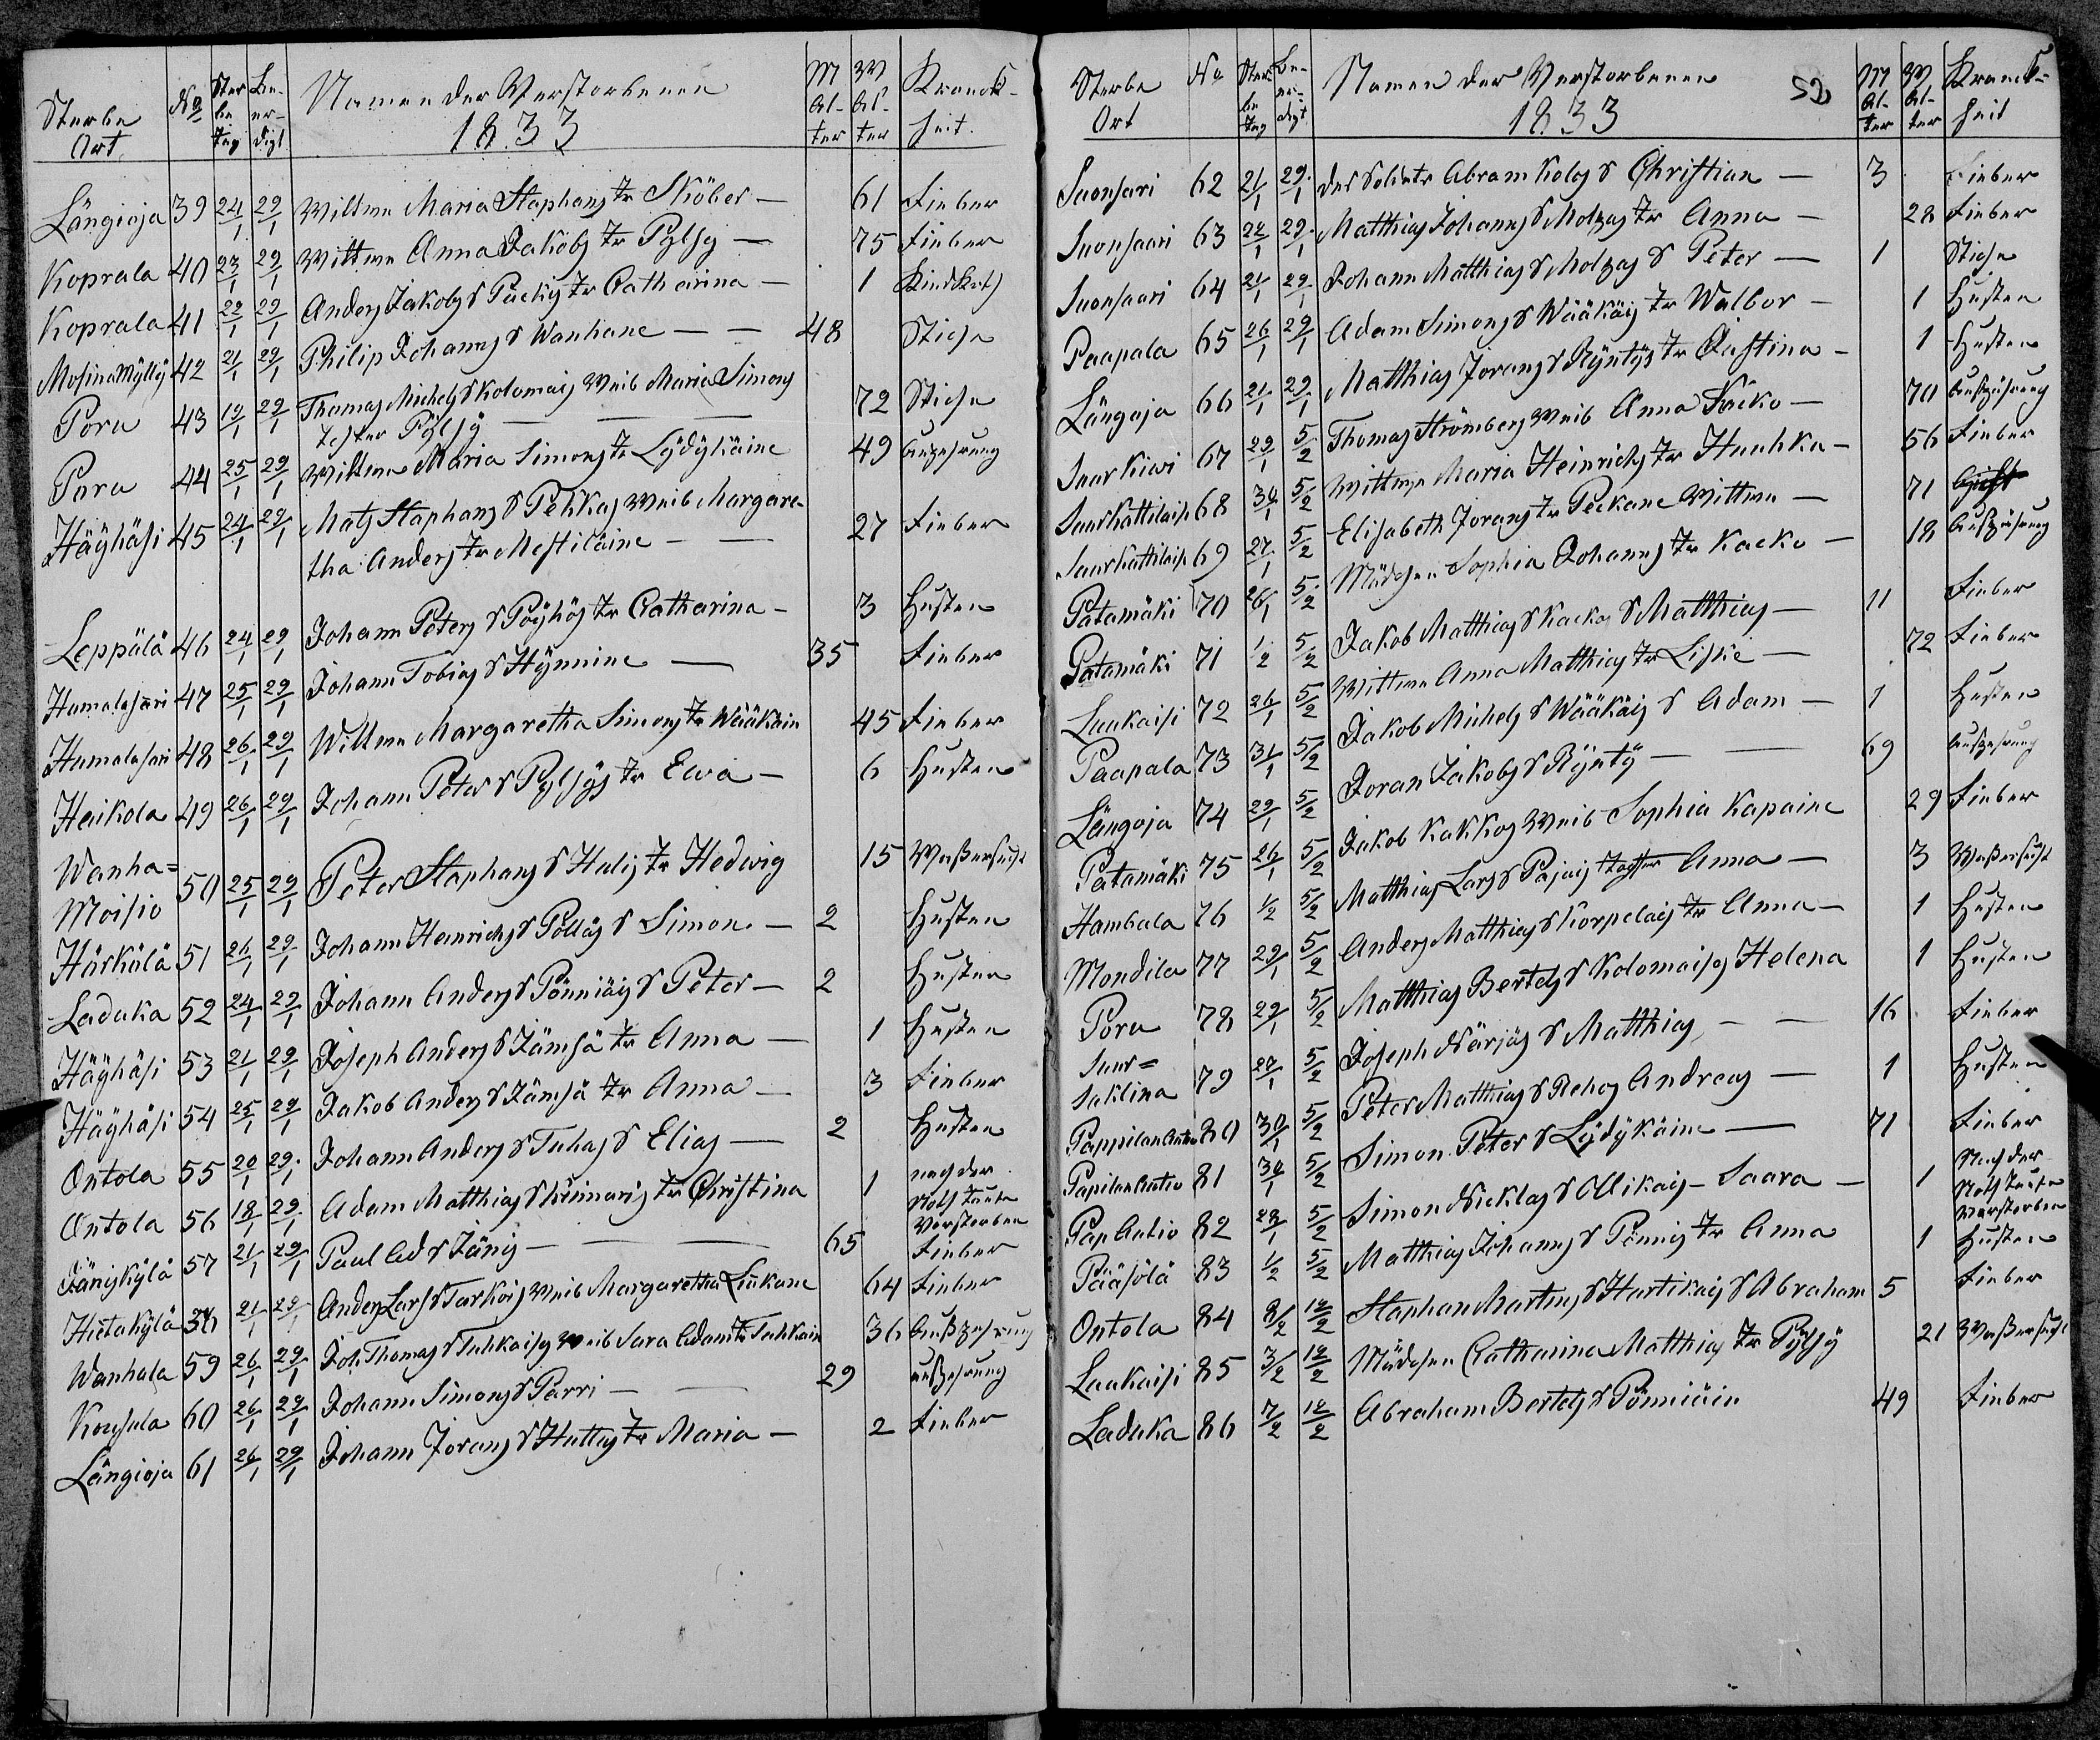 Sterbe Ort No Sterbe tag Beerdigt Namen der Verstorbenen 1833 M Alter W Alter Kranckheit
Längioja 39 24/1 29/1 Wittwe Maria Staphans Tr Sköber — 61 Fieber
Koprala 40 23/1 29/1 Wittwe Anna Jakobs Tr Pylsy — 75 Fieber
Koprala 41 22/1 29/1 Anders Jakobs S Packis Tr Catharina — 1
Mosina Mylly 42 21/1 29/1 Philip Johanns S Wanhane — — 48 Stiche
Poru 43 19/1 29/1 Thomas Michels S Kolomais Weib Maria Simons
Tochter Pylsy — — 72 Stiche
Poru 44 25/1 29/1 Wittwe Maria Simons Tr Lydykäine 49 Auzehrung
Häyhäsi 45 24/1 29/1 Mats Staphans S Pehkas Weib Margare-
tha Anders Tr Mestiläine — — 27 Fieber
Leppälä 46 24/1 29/1 Johann Peters S Pöyhös Tr Catharina — 3 Husten
Humalasaari 47 25/1 29/1 Johann Tobias S Hynnine — 35 Fieber
Humalasari 48 26/1 29/1 Wittwe Margaretha Simons Tr Wääkäin 45 Fieber
Heikola 49 26/1 29/1 Johann Peter S Pylsys Tr Ewa — 6 Husten
Wanha=
Moisio 50 25/1 29/1 Peter Staphans S Hulis Tr Hedwig 15 Waßersucht
Härkälä 51 26/1 29/1 Johann Heinrichs S Pöllös S Simon — 2 Husten
Laduka 52 24/1 29/1 Johann Anders S Pönniäis S Peter — 2 Husten
Häyhäsi 53 21/1 29/1 Joseph Anders S Jämsä Tr Anna — 1 Husten
Häyhäsi 54 25/1 29/1 Jakob Anders S Jämsä Tr Anna — 3 Fieber
Ontola 55 20/1 29/1 Johann Anders S Tuhas S Elias — 2 Husten
Ontola 56 18/1 29/1 Adam Matthias S Tr Christina 1 nach der Noth Taufe Verstorben
Jäniskylä 57 21/1 29/1 Paul Ad S Jänis — — 65 Fieber
Hietakylä 21/1 29/1 Anders Lars S Tarkois Weib Margaretha Liukane 64 Fieber
Wanhala 59 26/1 29/1 Joh. Thomas S Tuhkaise Weib Sara Adams Tr Tuhkain 36 Außzehrung
Kousula 60 26/1 29/1 Johann Simons S Parri — — 29 außzehrung
Längioja 61 26/1 29/1 Johann Jorans S Huttus Tr Maria — 2 Fieber
Sterbe Ort No Sterbe tag Beerdigt Namen der Verstorbenen 1833 M Alter W Alter Kranckheit
Suonsari 62 21/1 29/1 des Soldats Abram Kolos S Christian — 3 Fieber
Suonsaari 63 22/1 29/1 Matthias Johanns S Molzas Tr Anna — 28 Fieber
Suonsaari 64 21/1 29/1 Johann Matthias S Molzas S Peter — 1 Stiche
Paapala 65 26/1 29/1 Adam Simons S Wääkäis Tr Walbor — 1 Husten
Längoja 66 21/1 29/1 Matthias Jorans S Ryntys Tr Justina — 1 Husten
Suur Kiwi 67 29/1 5/2 Thomas Strömbers Weib Anna Käcko — 70 Außzehrung
Suurkattilaise 68 30/1 5/2 Wittwe Maria Heinrichs Tr Huuhka — 56 Fieber
Suurkattilaise 69 27/1 5/2 Elisabeth Jorans Tr Peckane Wittwe — 71
Patamäki 70 26/1 5/2 Mädchen Sophia Johanns Tr Kacko — 18 Außzehrung
Patamäki 71 1/2 5/2 Jakob Matthias S Kackos S Matthias — 11 Fieber
Luukaisi 72 26/1 5/2 Wittwe Anna Matthias Tr Liskie — 72 Fieber
Paapala 73 31/1 5/2 Jakob Michels S Wääkäis S Adam — 1 Husten
Längoja 74 29/1 5/2 Joran Jakobs S Rynty — — 69 Außzehrung
Patamäki 75 26/1 5/2 Jakob Kakkos Weib Sophia Kapaine 29 Fieber
Hambala 76 1/2 5/2 Matthias Lars S Pajais Tochter Anna — 3 Waßersucht
Mondila 77 29/1 5/2 Anders Matthias S Korpelais Tr Anna — 1 Husten
Poru 78 29/1 5/2 Matthias Bertels S Kolomaises Helena 1 Husten
Suur=
Saklina 79 27/1 5/2 Joseph Närjäs S Matthias — — 16 Fieber
Pappilan Autio 80 30/1 5/2 Peter Matthias S Rehos Andreas — 1 Husten
Papilan Autio 81 30/1 5/2 Simon Peter S Lydykäine — 71 Fieber
Pap Autio 82 28/1 5/2 Simon Nicklas S Ollikais — Saara — 1 Nach der Noth Taufe Verstorben
Pääsölä 83 1/2 5/2 Matthias Johanns S Pennis Tr Anna 1 Husten
Ontola 84 8/2 12/2 Staphan Martins S Hartikais S Abraham 5 Fieber
Luukaisi 85 3/2 12/2 Mädchen Catharina Matthias Tr Pylsy 21 Waßersucht
Laduka 86 7/2 12/2 Abraham Bertels S Pönniäin 49 Fieber